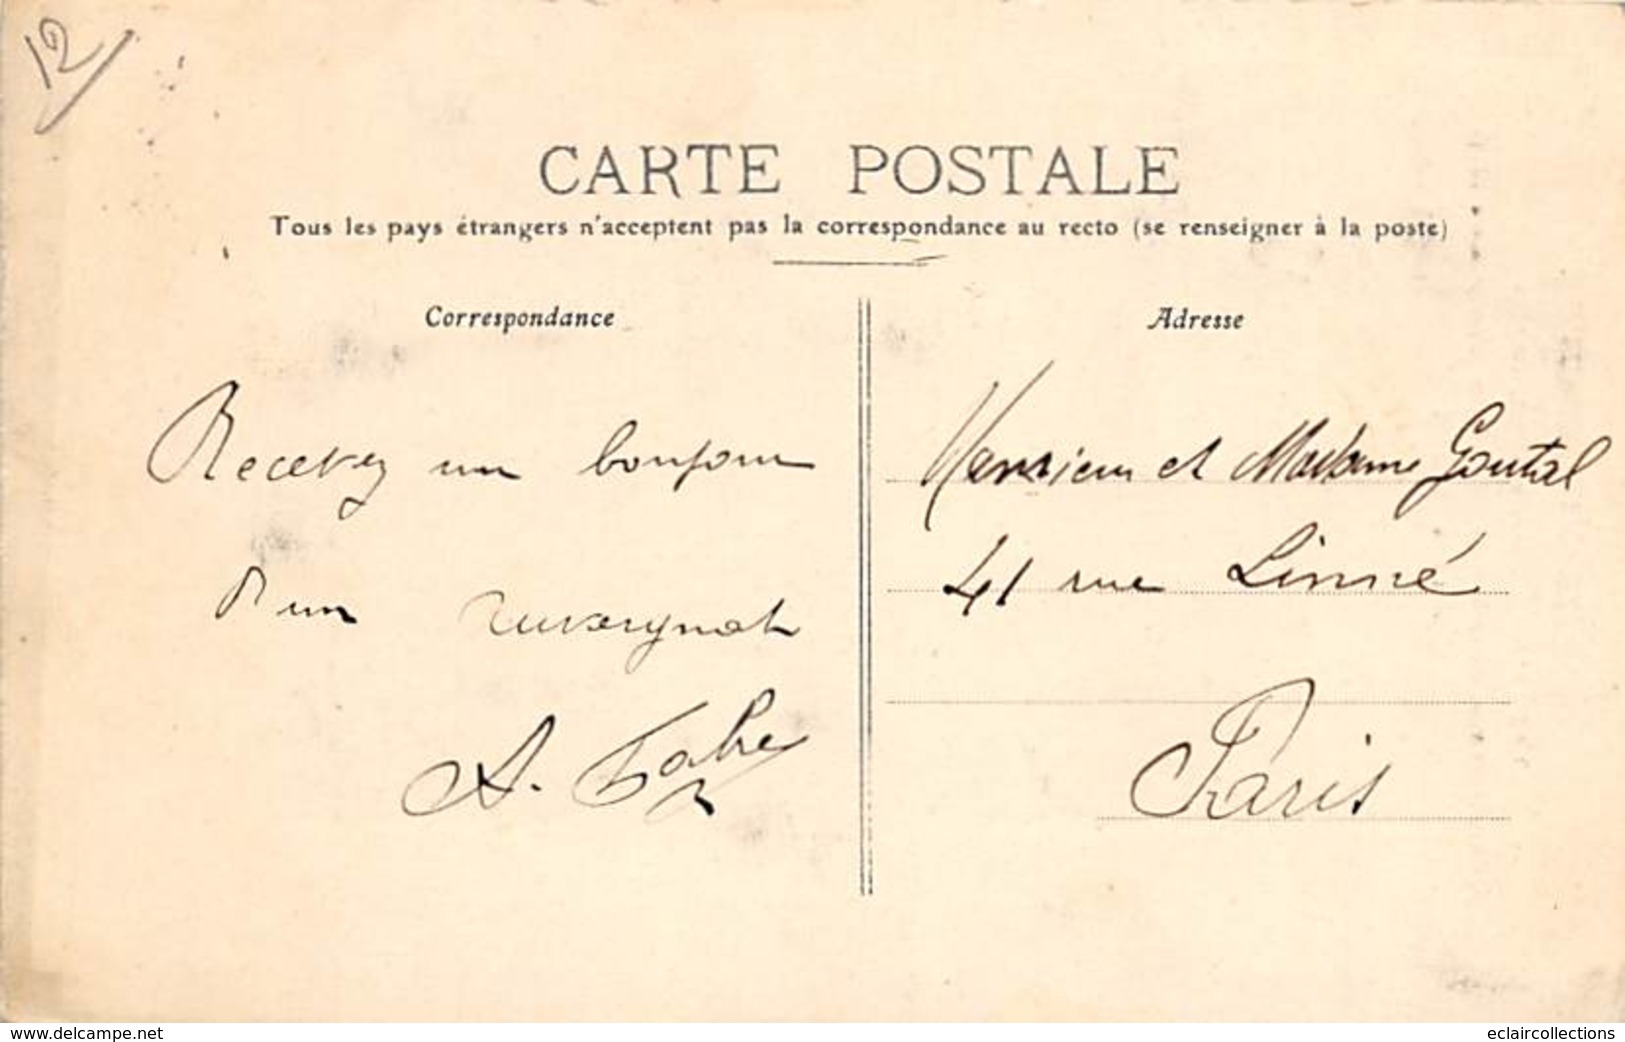 12
CARTE POSTALE
Tous les pays étrangers n'acceptent pas la correspondance au recto (se renseigner à la poste)
Correspondance
Recevez un bonjour
d'un auvergnat
A. Fabre
Adresse
Monsieur et Madame Goutal
41 rue Linné
Paris
www.delcampe.net
eclaircollections